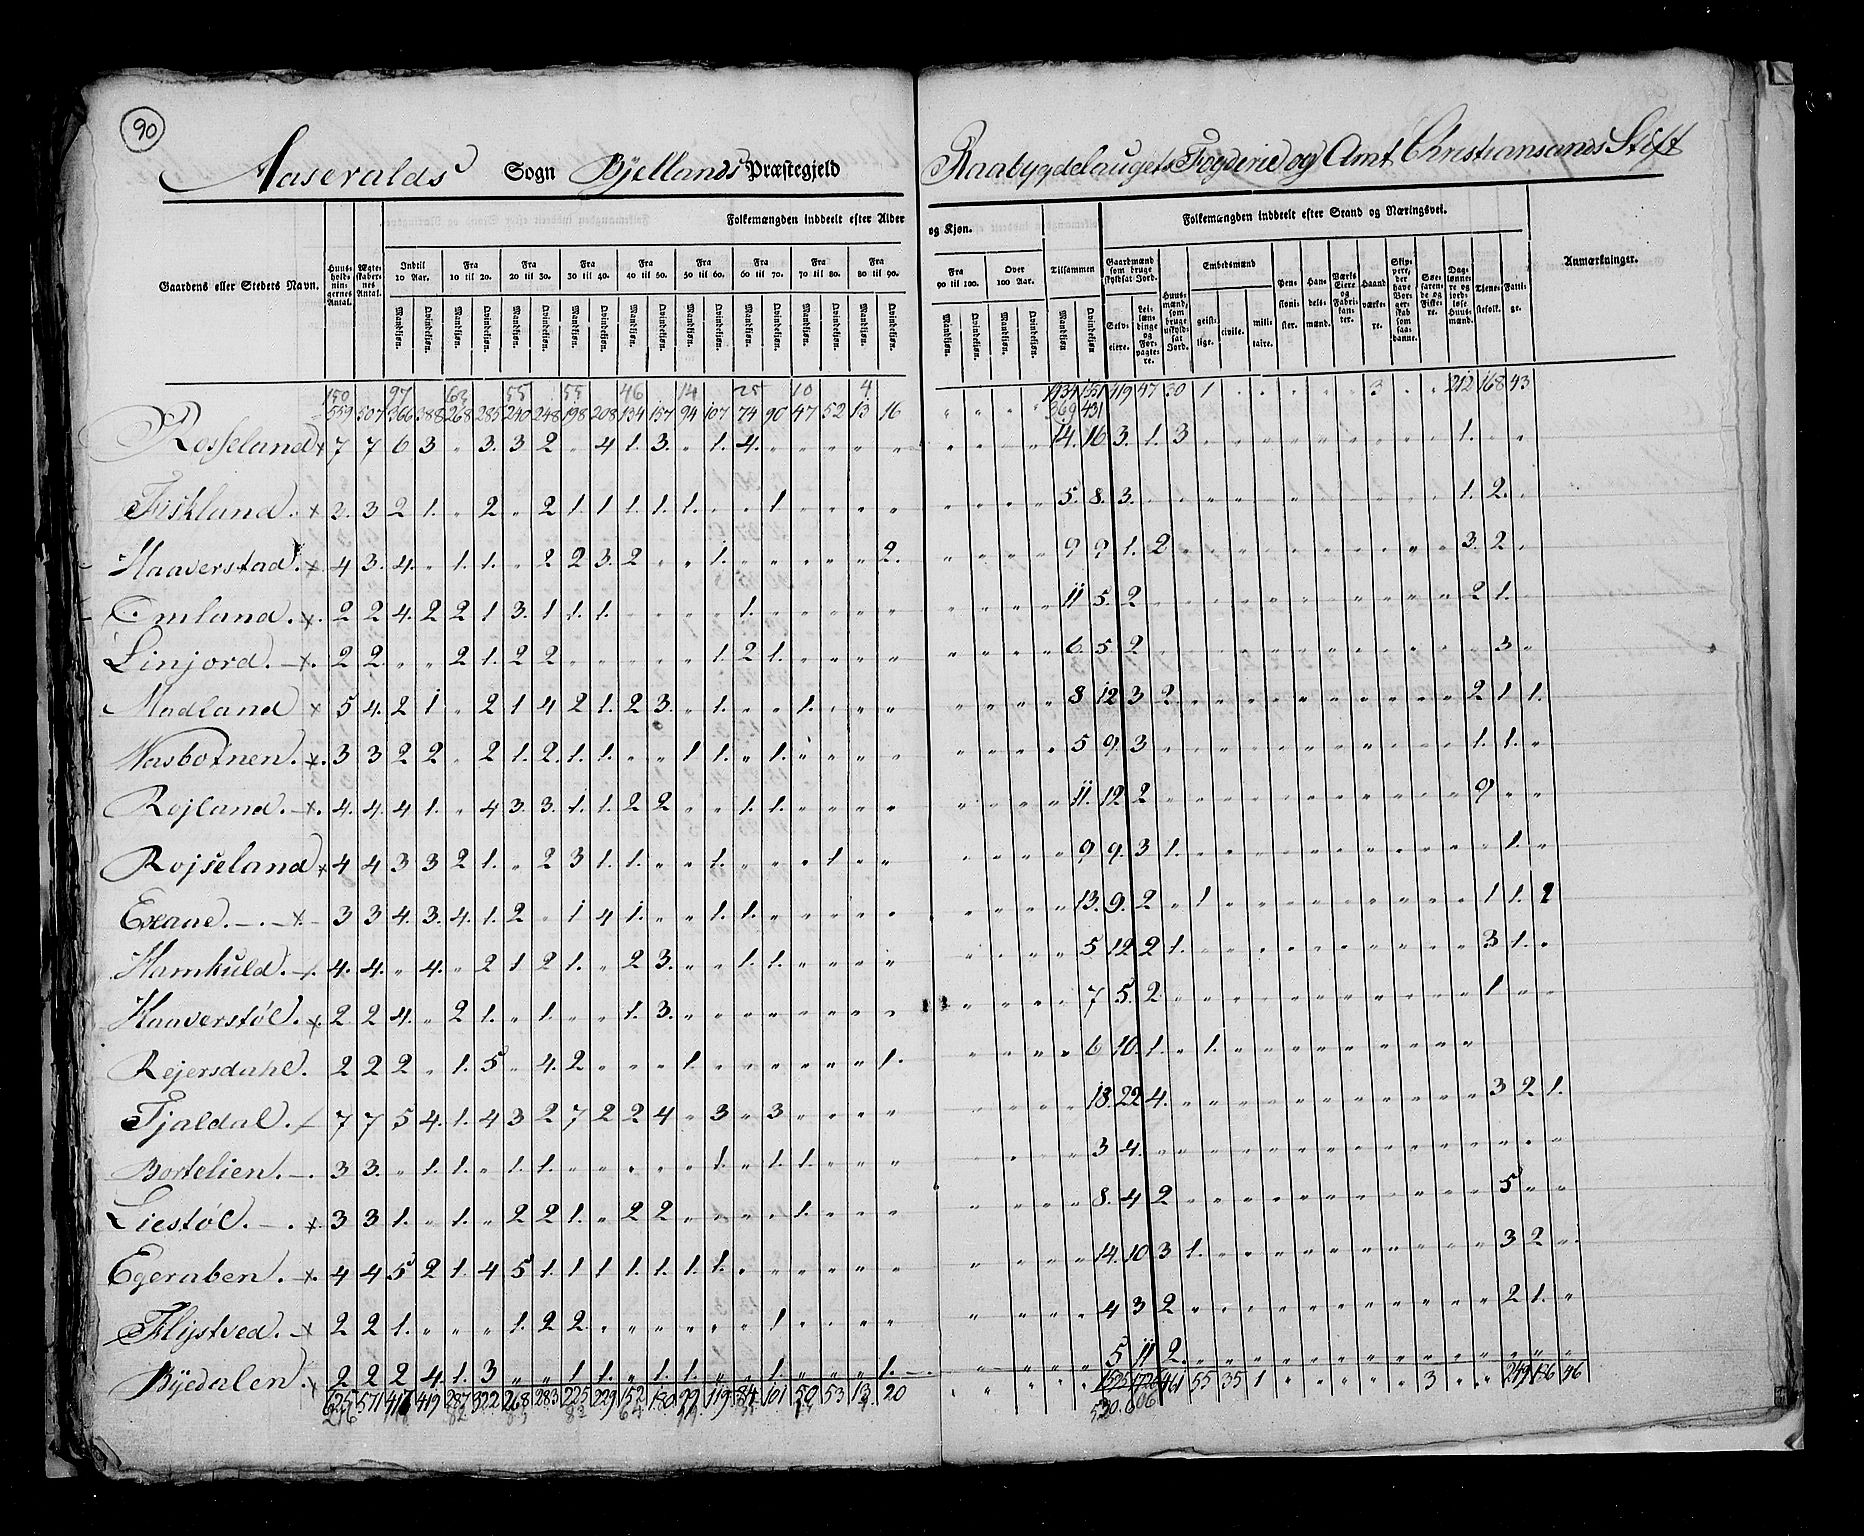 90
Aaseralds Sogn Bjellands Præstegjeld Raabygdelaugets Fogderie og Amt Christiansands Stift
Gaardens eller Stedets Navn. Huusholdningernes Antal. Ægteskabernes Antal. Folkemængden inddeelt efter Alder og Kjøn. Folkemængden inddeelt efter Stand og Næringsvei. Anmærkninger.
Indtil 10 Aar. Fra 10 til 20. Fra 20 til 30. Fra 30 til 40. Fra 40 til 50. Fra 50 til 60. Fra 60 til 70. Fra 70 til 80. Fra 80 til 90. Fra 90 til 100. Over 100 Aar. Tilsammen Gaardmænd som bruge skyldsat Jord. Huusmænd, som bruge uskyldsat Jord. Embedsmænd Pensionister. Handelsmænd. Værks Eiere og Fabrikanter. Haandværkere. Skippere, der have Borgerskab som saadanne. Søefarende og Fiskere. Daglønnere og jordløse Huusmænd. Tjenestefolk. Fattige.
Mandkjøn. Qvindekjøn. Mandkjøn. Qvindekjøn. Mandkjøn. Qvindekjøn. Mandkjøn. Qvindekjøn. Mandkjøn. Qvindekjøn. Mandkjøn. Qvindekjøn. Mandkjøn. Qvindekjøn. Mandkjøn. Qvindekjøn. Mandkjøn. Qvindekjøn. Mandkjøn. Qvindekjøn. Mandkjøn. Qvindekjøn. Mandkjøn. Qvindekjøn Selveiere. Leilændinge og Forpagtere. geistlige. civile. militaire.
150 97 63 55 55 46 14 25 10 4
559 507 366 388 268 285 240 248 198 208 134 157 94 107 74 90 47 52 13 16 " " " " 1434 1551 419 47 30 1 " " " " " 3 " " 212 168 43
369 431
Rosseland x 7 7 6 3 " 3. 3 2 " 4 1. 3. " 1. 4. " " " " " " " " " 14. 16 3. 1. 3 " " " " " " " " " 1. " "
Fiskland. x 3. 3 2 1. " 2 " 2 1 1 1. 1. 1. " " 1 " " " " " " " " 5. 8. 3. " " " " " " " " " " " 1. 2. "
Haaverstad. x. 4 3. 4. " 1. 1. " 2 2 3. 2 " " 1. " " " " " 2. " " " " 9 9 1. 2 " " " " " " " " " " 3. 2. "
Omland. x. 2 2 4. 2 2 1 3. 1 1. 1. " " " " 1. " " " " " " " " " 11 5. 2 " " " " " " " " " " " 2 1. "
Linjord. x. 2 2. " " 2 1. 2 2 " " " " " 1. 2 1. " " " " " " " " 6. 5 2 " " " " " " " " " " " " 3 "
Madland x 5 4. 2 1 " 2 1 4 2 1. 2 3. " 1. " " 1. " " " " " " " 8 12 3 2. " " " " " " " " " " 2 1 1.
Nasbotnen. x. 3 3 2 2 " 2 1. 2. 1. 1. " " 1 1. " 1. " " " " " " " " 5 9. 3 " " " " " " " " " " " 1. 1. "
Rojland. x. 4. 4. 4 1. " 4 3. 3. 1. 1. 2 2 " " 1. 1. " " " " " " " " 11. 12 2 " " " " " " " " " " " 9 " "
Rojseland x 4 4 3 3 2 1. " 2 3 1. 1. " " 1. " " " 1 " " " " " " 9 9. 3 1. " " " " " " " " " " " 1. "
x 3 3 4. 3. 4. 1. 2 " 1 4 1. " " 1. 1. " " " " " " " " " 13. 9. 2 " 1 " " " " " " " " " 1 1. 2
Hamkuld. 4. 4. " 4. " 2 1 2 1. " 2 3. " " 1. 1. " " " " " " " " 5 12 2 1. " " " " " " " " " " 3 1. "
Haaverstøl. x 2 2 4. " 2 1. " 1. " " 1. 3. " " " " " " " " " " " " 7 5. 2 " " " " " " " " " " " 1 " "
Rejersdahl. 2 2 2 " 1. 5 " 4. 2 " " " 1 " " " " " " 1. " " " " 6 10. 1. " 1. " " " " " " " " "
Fjaldal. 7 7 5 4. 1. 4 3 2 7 2 2 4 " 3 " 3 " " " " " " " " 18. 22 4. " " " " " " " " " " " 3 2 1.
Bortelien. 3 3. " 1. 1. " 1. 1. " " " " " 1. " 1. 1. " " " " " " 3 4. " " " " " " " " " " " " " " "
Liestøl. x 3 3 1. " 1. " 2 2 1. " 2 2 " " " " 1. " " " " " " " 8. 4 2 " " " " " " " " " " " 5 " "
Egeraben. x. 4 4 5 2 1. 4 5 1. 1 1 1. 1. 1. 1. " " " " " " " " " " 14. 10 3 1. " " " " " " " " " " 3 2 "
Flystved. x 2 2 1. " " " 1. 2 2. " " " " " " 1 " " " " " " " " 4 3 2 " " " " " " " " " " " 2 1. "
Byedalen. x 2 2 2 4. 1. 3 " " 1 1. " 1. 1. " " 1. " " " 1. " " " " 5 11 2. " " " " " " " " " " " " " "
625 571 416 419 287 322 268 283 225 229 152 180 99 119 84 101 50 53 13 20 " " " " 1595 1726 461 55 35 1 " " " " " 3 " " 249 186 46
530. 606